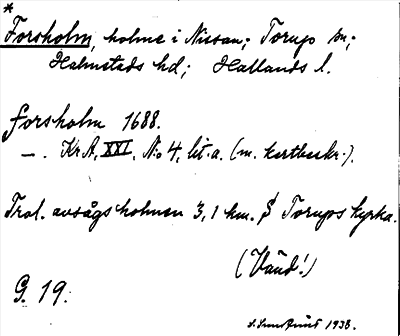 *
Forsholm, holme i Nissan; Torup sn;
Halmstads hd; Hallands l.
forsholm 1688.
— . Kr A, XXI, No 4, lit. a. (m. kartbeskr.).
Trol. avsågs holmen 3,1 km. S Torups kyrka.
(Vänd!)
G. 19.
1938.